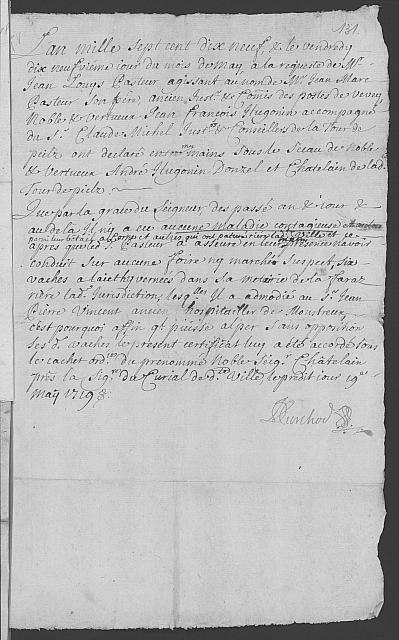 131.
L'an mille sept cent dix neuf, & le vendredy
dix neufvieme jour du mois de may, à la requeste de Mr.
Jean Louys Pasteur agissant au nom de Mr. Jean Marc
Pasteur son père, ancien Just.r & Comis des postes de Vevey
Noble & vertueux Jean François Hugonin accompagné
du Sr. Claude Michel Just.r & Conseillers de la Tour de
pielz ont déclaré entre mes mains sous le Sceau de Noble
& vertueux André Hugonin Donzel et Chatelain de lad.
Tour de pielz
Que par la grace du Seigneur des passé an & jour &
au dela il n'y a eu aucune Maladie contagieuse
parmi leur betail
après que led. Sr. Pasteur a asseuré en leur presence n'avoir
conduit sur aucune foire ny marché suspect, six
vaches a lait hyvernées dans sa metairie de la faraz
riere lad. Jurisdiction, lesq.lles Il a admodié au Sr. Jean
Pierre Vincent ancien hospitailler de Montreux
c'est pourquoi affin q. puisse alper sans opposition
ses d. vaches le present certificat luy a eté accordé sous
le cachet ord.re du prenommé Noble Seig.r Châtelain
près la Sig.re du Curial de d.te Ville, le predit jour 19e
May 1719